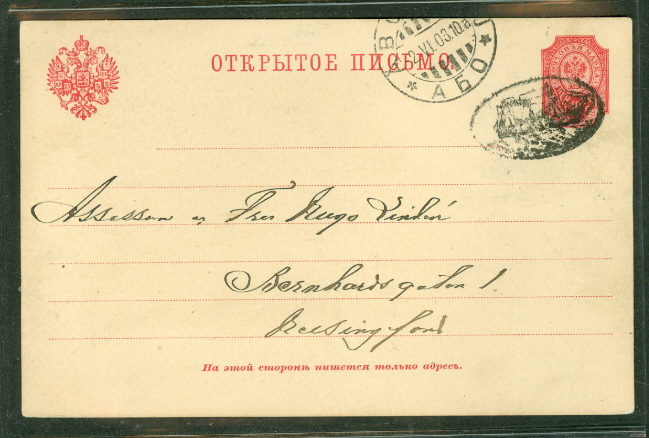 ОТКРЫТОЕ ПИСЬМО
2.VI.03.10a
АБО
Assessor o Fru Hugo Lindén
Bernhardsgatan 1.
Helsingfors
На этой сторонѣ пишется только адресъ.